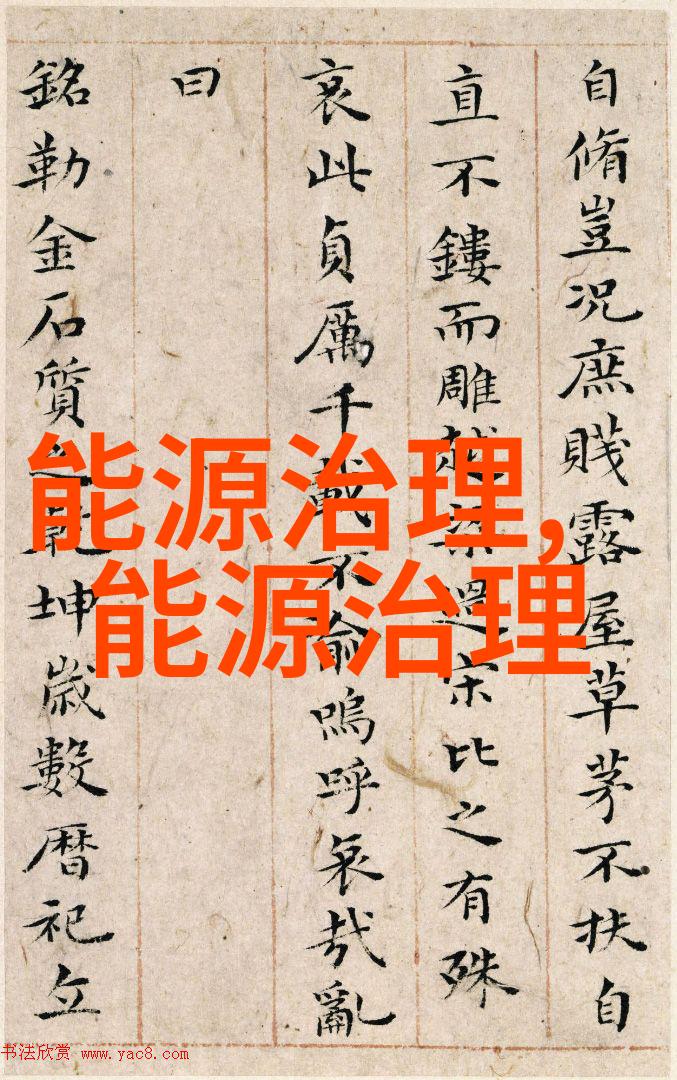 自脩豈況庶賤露屋草茅不扶自
直不鏤而雕越梁過宋比之有殊
哀此貞厲千載不渝嗚呼哀哉亂
曰
銘勒金石質之乾坤歲數曆祀立
能源治理,
能源治理
书法欣赏 www.yac8.com